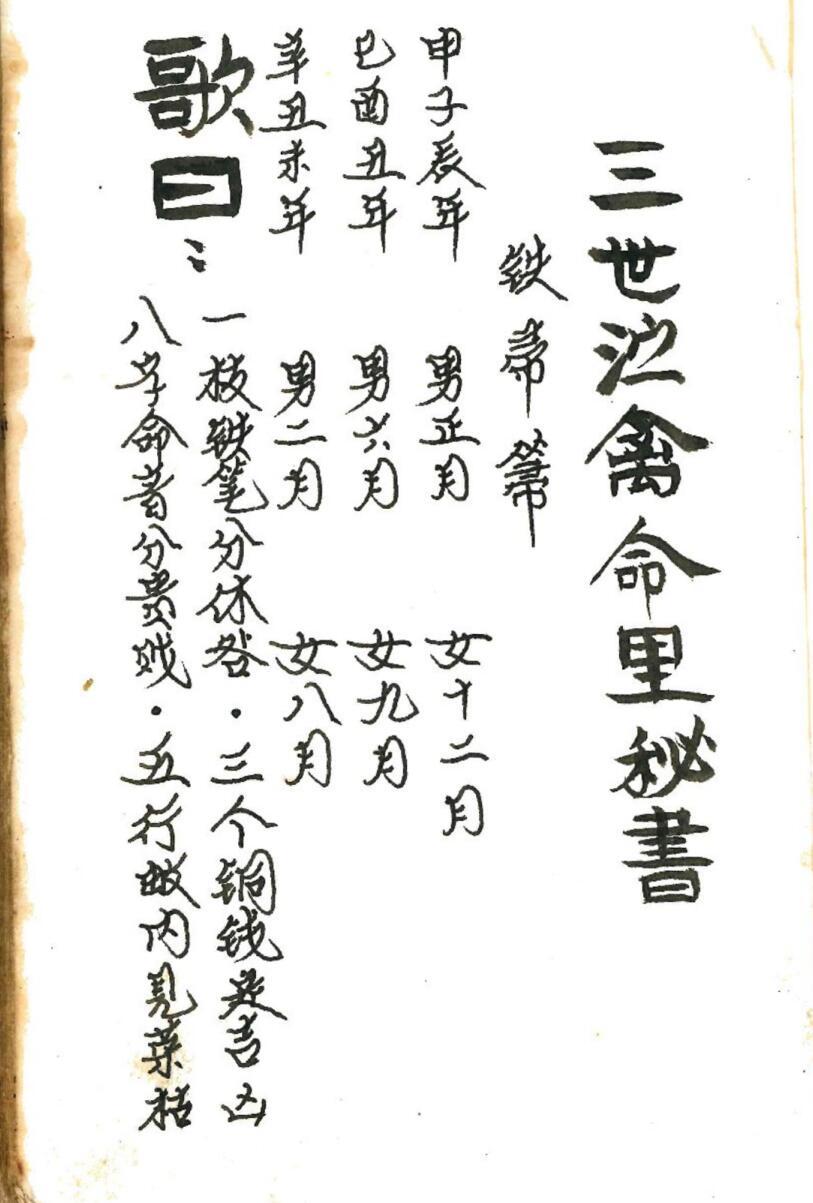 三世演禽命里秘書
铁帚篇
申子辰年 男正月 女十二月
巳酉丑年 男六月 女九月
辛丑未年 男二月 女八月
歌曰：
一枝铁笔分休咎·三个铜钱定吉凶
八字命者分贵贱·五行内見荣枯